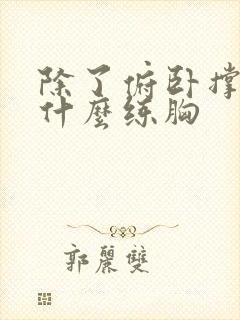 除了俯卧撑
什麼练胸
郭麗雙